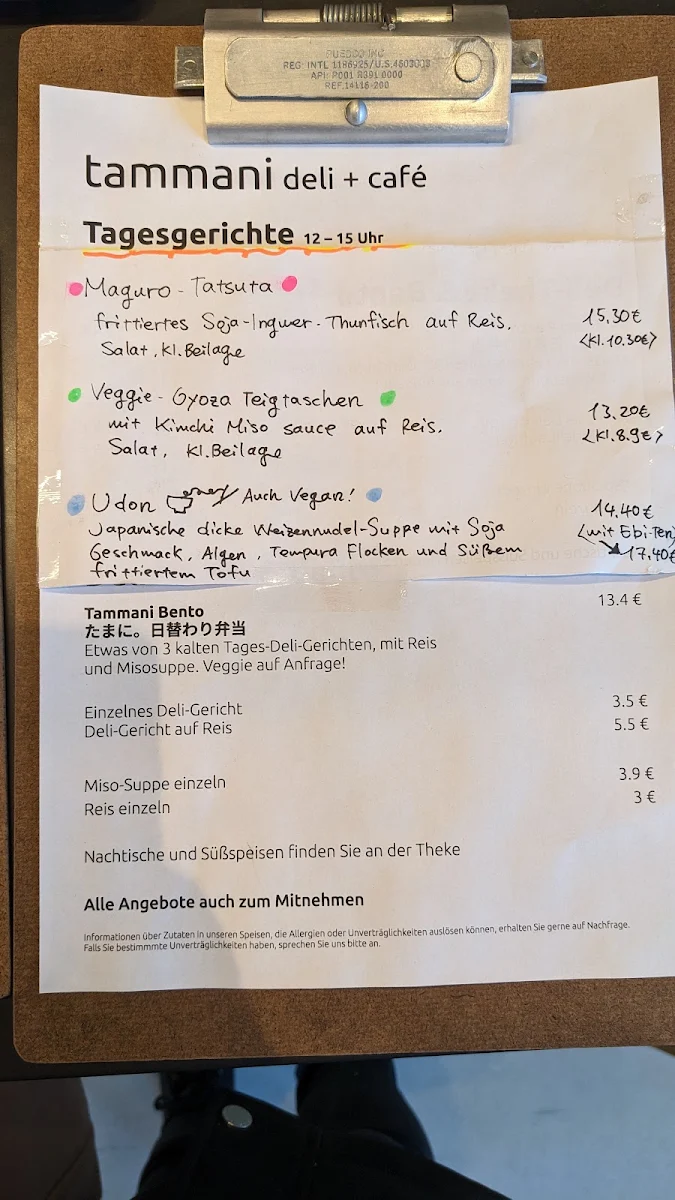 REG. INTL 1186925/U.S.4603003
API: P001 R391 0000
REF.14116-200
tammani deli + café
Tagesgerichte 12 – 15 Uhr
Maguro - Tatsuta
frittiertes Soja-Ingwer-Thunfisch auf Reis. 15,30€
Salat, Kl. Beilage <Kl. 10.30€>
Veggie - Gyoza Teigtaschen
mit Kimchi Miso sauce auf Reis. 13.20€
Salat, Kl. Beilage <Kl. 8.9€>
Udon Auch Vegan! 14.40€
Japanische dicke Weizennudel-Suppe mit Soja (mit Ebi-Ten)
Geschmack, Algen, Tempura Flocken und Süßem 17.40€
frittiertem Tofu
Tammani Bento 13.4 €
たまに。日替わり弁当
Etwas von 3 kalten Tages-Deli-Gerichten, mit Reis
und Misosuppe. Veggie auf Anfrage!
Einzelnes Deli-Gericht 3.5 €
Deli-Gericht auf Reis 5.5 €
Miso-Suppe einzeln 3.9 €
Reis einzeln 3 €
Nachtische und Süßspeisen finden Sie an der Theke
Alle Angebote auch zum Mitnehmen
Informationen über Zutaten in unseren Speisen, die Allergien oder Unverträglichkeiten auslösen können, erhalten Sie gerne auf Nachfrage.
Falls Sie bestimmmte Unverträglichkeiten haben, sprechen Sie uns bitte an.